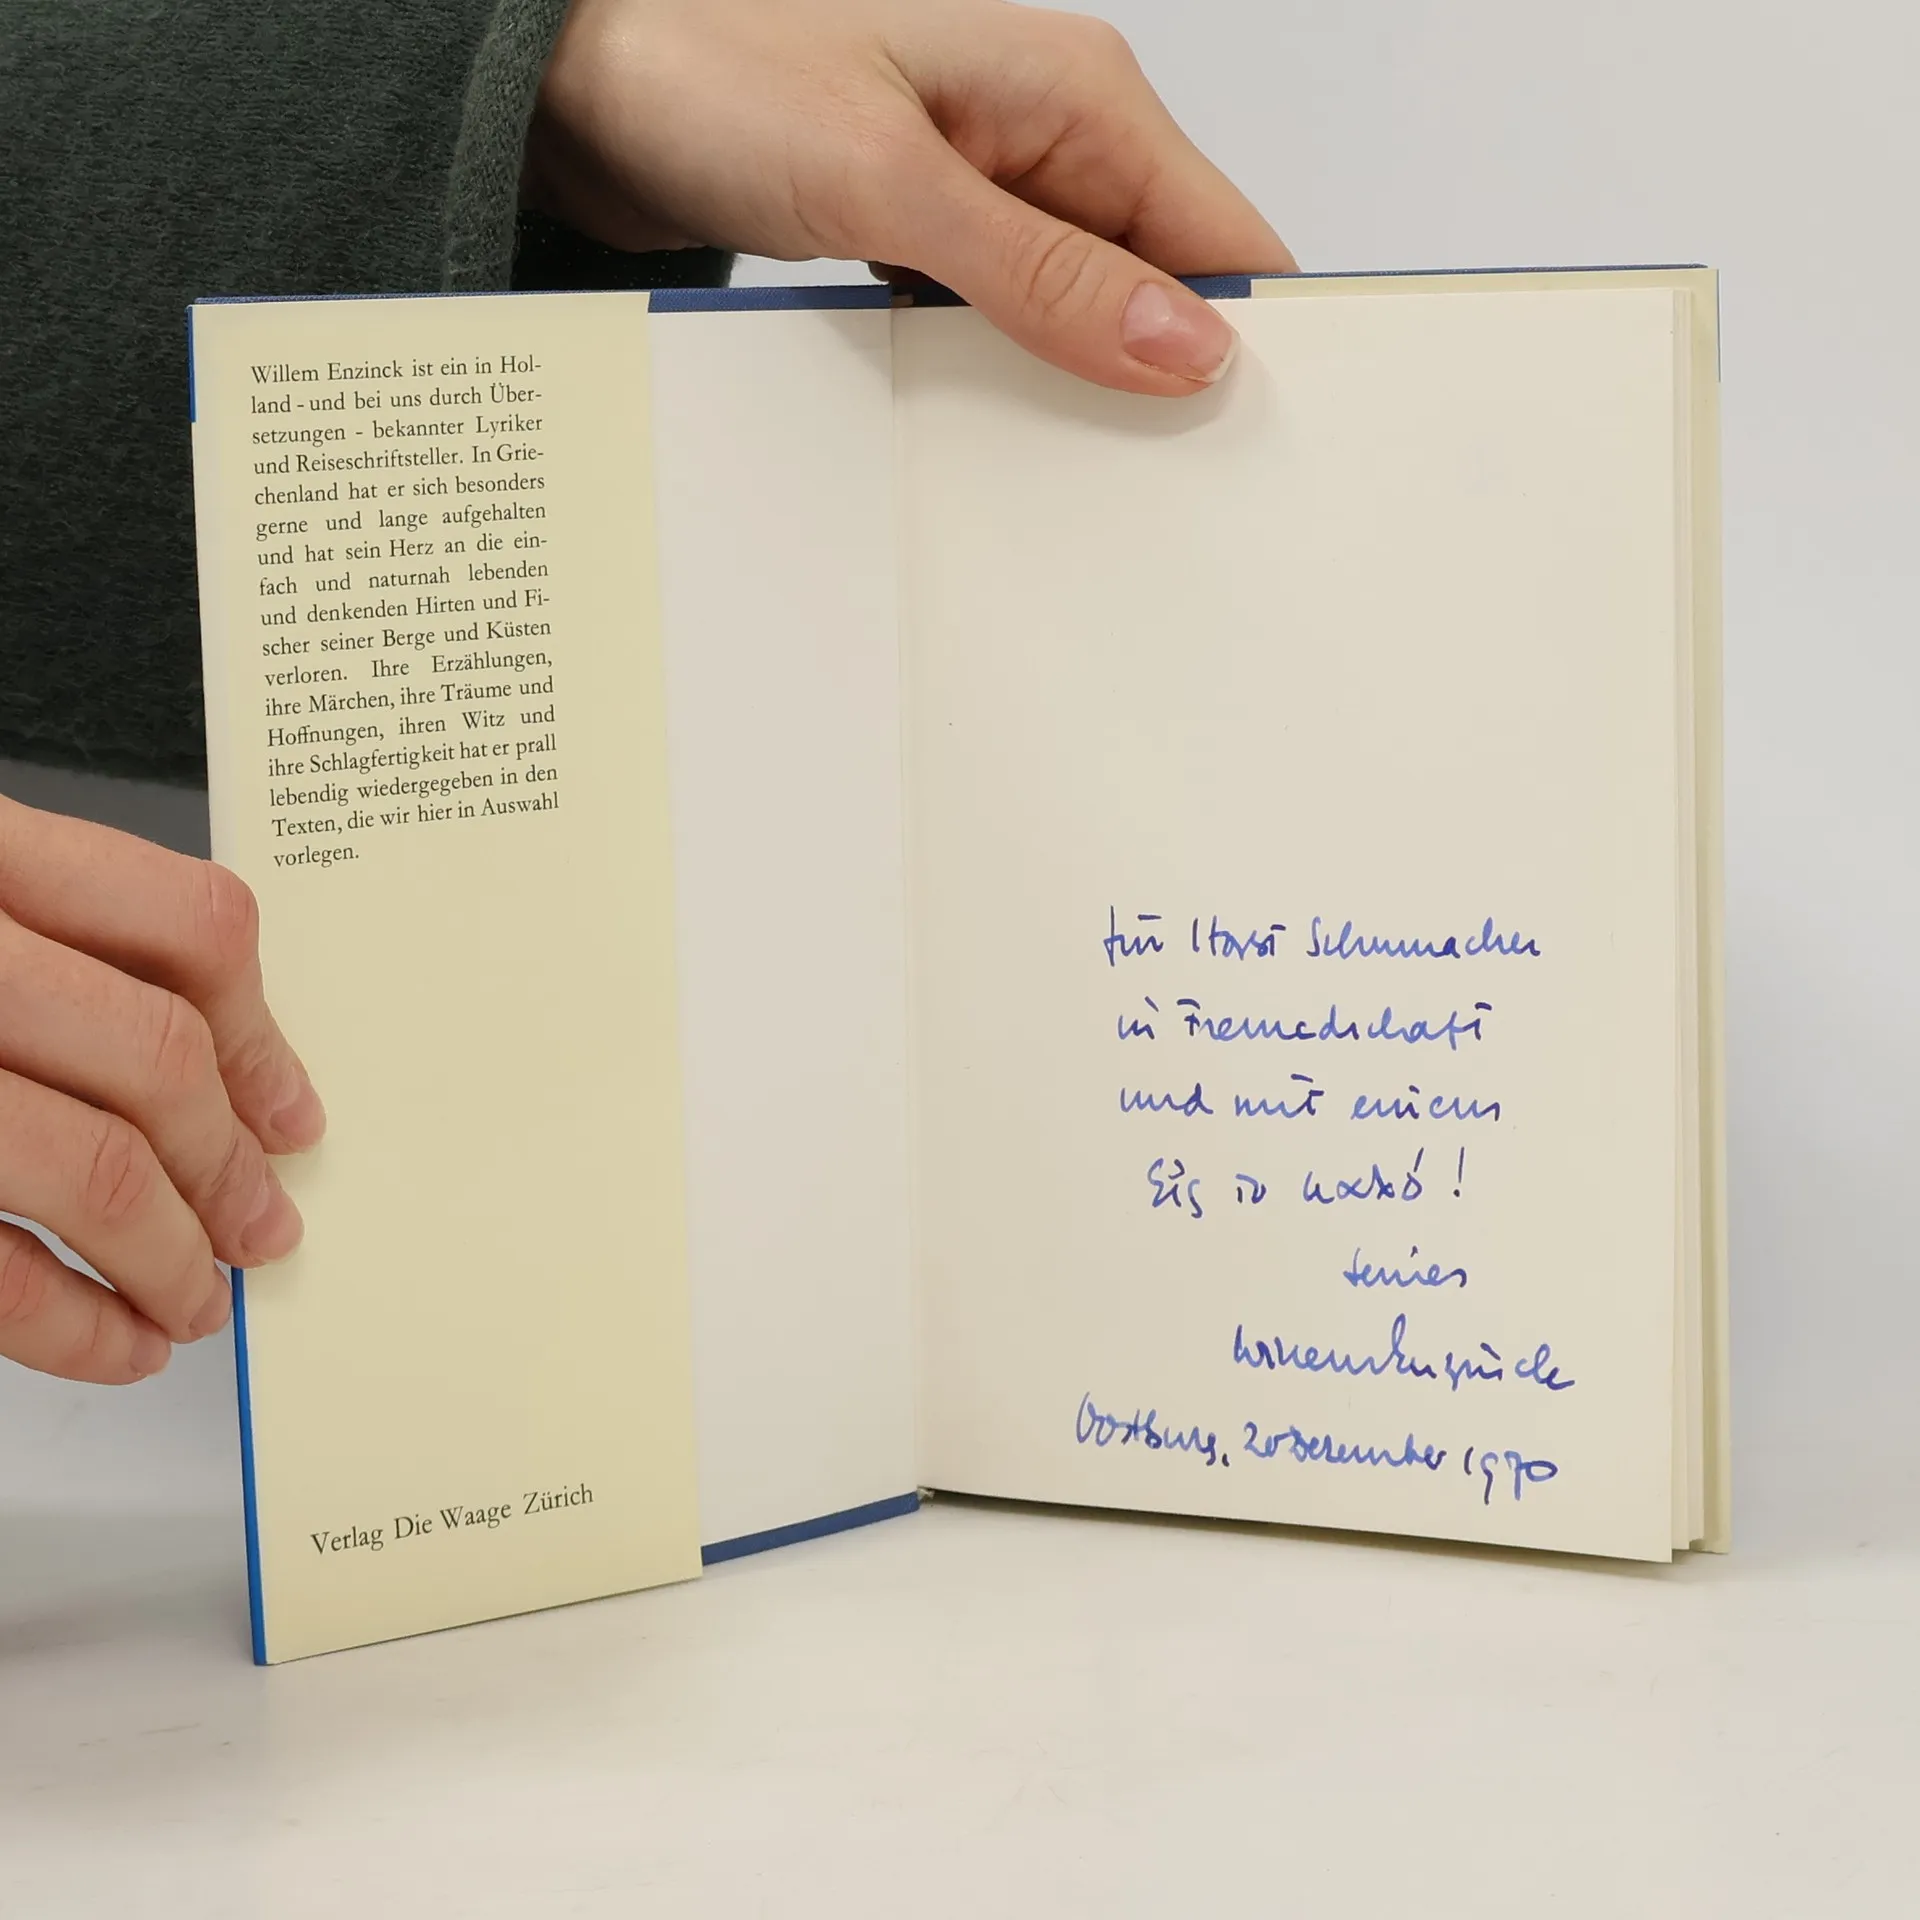 Willem Enzinck ist ein in Hol-
land - und bei uns durch Über-
setzungen - bekannter Lyriker
und Reiseschriftsteller. In Grie-
chenland hat er sich besonders
gerne und lange aufgehalten
und hat sein Herz an die ein-
fach und naturnah lebenden
und denkenden Hirten und Fi-
scher seiner Berge und Küsten
verloren. Ihre Erzählungen,
ihre Märchen, ihre Träume und
Hoffnungen, ihren Witz und
ihre Schlagfertigkeit hat er prall
lebendig wiedergegeben in den
Texten, die wir hier in Auswahl
vorlegen.
Verlag Die Waage Zürich
für Horst Schumacher
in Freundschaft
und mit einem
Εἰς τὸ καλό!
seines
Willem Enzinck
Oostburg, 20 Dezember 1970